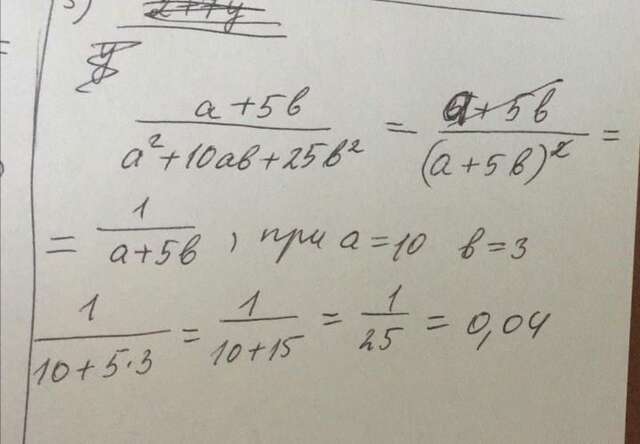 3)
(a+5b)/(a²+10ab+25b²) = (a+5b)/(a+5b)² =
= 1/(a+5b), при a=10 b=3
1/(10+5·3) = 1/(10+15) = 1/25 = 0,04